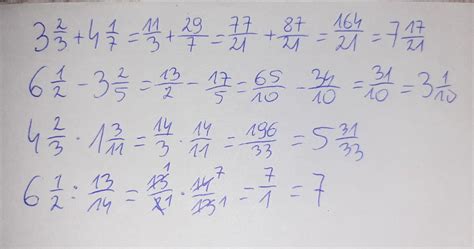 3 2/3 + 4 1/7 = 11/3 + 29/7 = 77/21 + 87/21 = 164/21 = 7 17/21
6 1/2 - 3 2/5 = 13/2 - 17/5 = 65/10 - 34/10 = 31/10 = 3 1/10
4 2/3 · 1 3/11 = 14/3 · 14/11 = 196/33 = 5 31/33
6 1/2 : 13/14 = 13 1/2 1 · 14 7/13 1 = 7/1 = 7